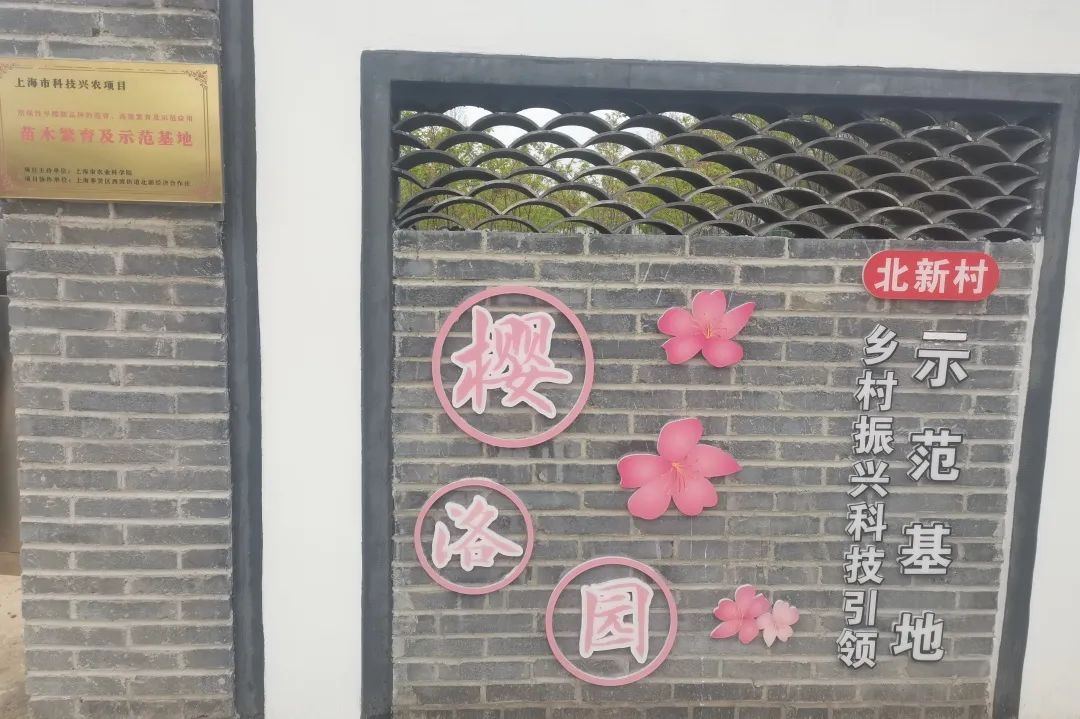 上海市科技兴农项目
苗木繁育及示范基地
项目主持单位：上海市农业科学院
项目协作单位：上海奉贤区西渡街道北新经济合作社
樱
洛
园
北新村
示范基地
乡村振兴科技引领